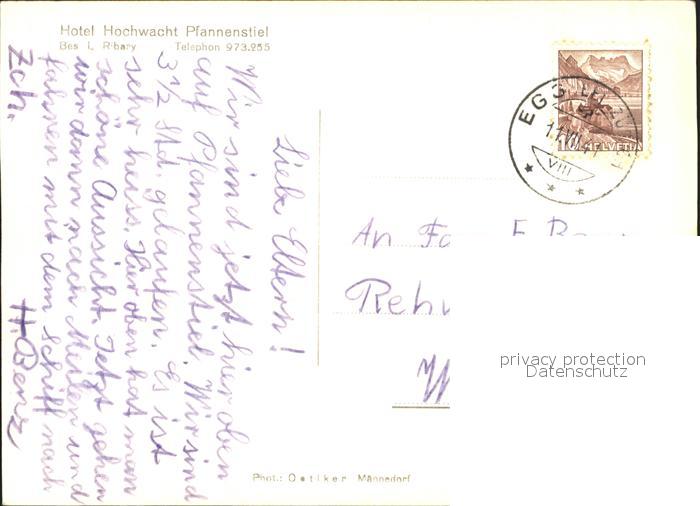 Hotel Hochwacht Pfannenstiel
Bes L. Ribary Telephon 973.255
Liebe Eltern!
Wir sind jetzt hier oben
auf Pfannenstiel. Wir sind
3 1/2 Std. gelaufen. Es ist
sehr heiss. Hier oben hat man
schöne Aussicht. Jetzt gehen
wir dann nach Meilen und
fahren mit dem Schiff nach
Zch.
H. Benz
EGG
VIII
10 HELVETIA
An Fam. E. B
Reh
W
privacy protection
Datenschutz
Phot.: Oetiker Männedorf